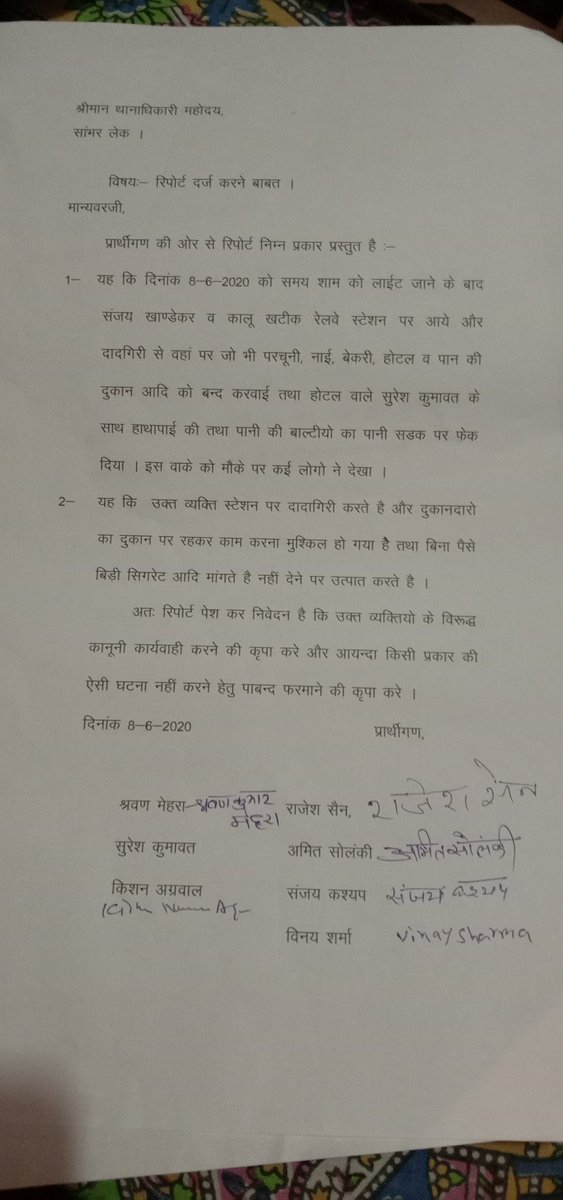 श्रीमान थानाधिकारी महोदय,
सांभर लेक ।
विषयः– रिपोर्ट दर्ज करने बाबत ।
मान्यवरजी,
प्रार्थीगण की ओर से रिपोर्ट निम्न प्रकार प्रस्तुत है :–
1– यह कि दिनांक 8–6–2020 को समय शाम को लाईट जाने के बाद
संजय खाण्डेकर व कालू खटीक रेलवे स्टेशन पर आये और
दादगिरी से वहां पर जो भी परचूनी, नाई, बेकरी, होटल व पान की
दुकान आदि को बन्द करवाई तथा होटल वाले सुरेश कुमावत के
साथ हाथापाई की तथा पानी की बाल्टीयो का पानी सडक पर फेक
दिया । इस वाके को मौके पर कई लोगो ने देखा ।
2– यह कि उक्त व्यक्ति स्टेशन पर दादागिरी करते है और दुकानदारो
का दुकान पर रहकर काम करना मुश्किल हो गया है तथा बिना पैसे
बिडी सिगरेट आदि मांगते है नहीं देने पर उत्पात करते है ।
अतः रिपोर्ट पेश कर निवेदन है कि उक्त व्यक्तियो के विरूद्ध
कानूनी कार्यवाही करने की कृपा करे और आयन्दा किसी प्रकार की
ऐसी घटना नहीं करने हेतु पाबन्द फरमाने की कृपा करे ।
दिनांक 8–6–2020 प्रार्थीगण,
श्रवण मेहरा श्रवण कुमार मेहरा राजेश सैन, राजेश सेन
सुरेश कुमावत अमित सोलंकी अमित सोलंकी
किशन अग्रवाल संजय कश्यप संजय कश्यप
विनय शर्मा Vinay Sharma